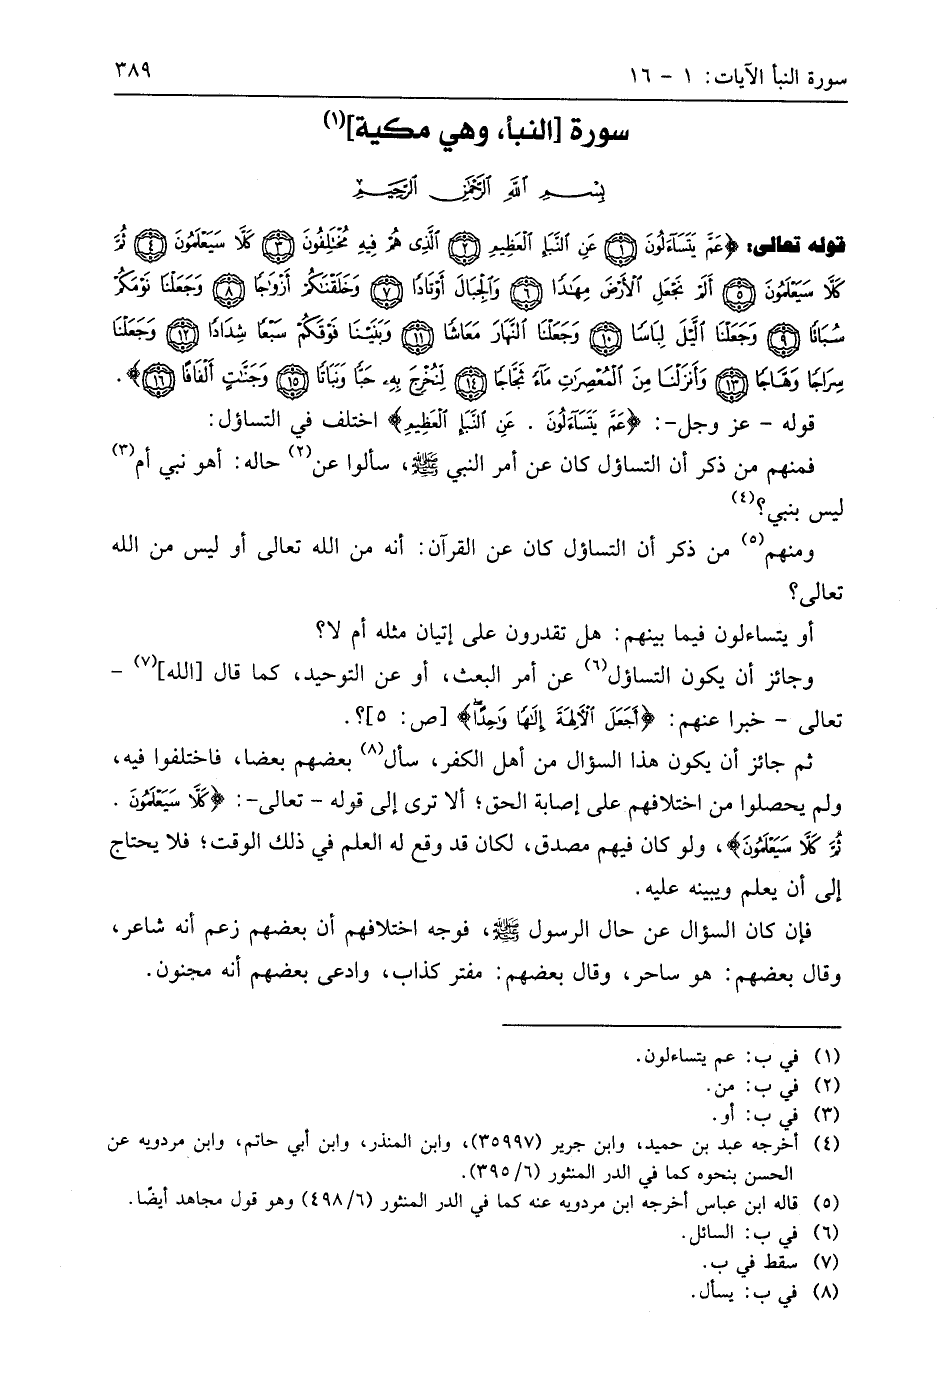 سورة النبأ الآيات: ١ - ١٦
٣٨٩
سورة [النبأ، وهي مكية](١)
بِسْمِ اللَّهِ الرَّحْمَٰنِ الرَّحِيمِ
قوله تعالى: ﴿عَمَّ يَتَسَاءَلُونَ ١ عَنِ النَّبَإِ الْعَظِيمِ ٢ الَّذِى هُمْ فِيهِ مُخْتَلِفُونَ ٣ كَلَّا سَيَعْلَمُونَ ٤ ثُمَّ
كَلَّا سَيَعْلَمُونَ ٥ أَلَمْ نَجْعَلِ الْأَرْضَ مِهَٰدًا ٦ وَالْجِبَالَ أَوْتَادًا ٧ وَخَلَقْنَٰكُمْ أَزْوَٰجًا ٨ وَجَعَلْنَا نَوْمَكُمْ
سُبَاتًا ٩ وَجَعَلْنَا الَّيْلَ لِبَاسًا ١٠ وَجَعَلْنَا النَّهَارَ مَعَاشًا ١١ وَبَنَيْنَا فَوْقَكُمْ سَبْعًا شِدَادًا ١٢ وَجَعَلْنَا
سِرَاجًا وَهَّاجًا ١٣ وَأَنزَلْنَا مِنَ الْمُعْصِرَٰتِ مَآءً ثَجَّاجًا ١٤ لِّنُخْرِجَ بِهِۦ حَبًّا وَنَبَاتًا ١٥ وَجَنَّٰتٍ أَلْفَافًا ١٦﴾.
قوله - عز وجل-: ﴿عَمَّ يَتَسَآءَلُونَ . عَنِ النَّبَإِ الْعَظِيمِ﴾ اختلف في التساؤل:
فمنهم من ذكر أن التساؤل كان عن أمر النبي ﷺ، سألوا عن(٢) حاله: أهو نبي أم(٣)
ليس بنبي؟(٤)
ومنهم(٥) من ذكر أن التساؤل كان عن القرآن: أنه من الله تعالى أو ليس من الله
تعالى؟
أو يتساءلون فيما بينهم: هل تقدرون على إتيان مثله أم لا؟
وجائز أن يكون التساؤل(٦) عن أمر البعث، أو عن التوحيد، كما قال [الله](٧) -
تعالى - خبرا عنهم: ﴿أَجَعَلَ الْآلِهَةَ إِلَٰهًا وَٰحِدًا﴾ [ص: ٥]؟.
ثم جائز أن يكون هذا السؤال من أهل الكفر، سأل(٨) بعضهم بعضا، فاختلفوا فيه،
ولم يحصلوا من اختلافهم على إصابة الحق؛ ألا ترى إلى قوله - تعالى-: ﴿كَلَّا سَيَعْلَمُونَ .
ثُمَّ كَلَّا سَيَعْلَمُونَ﴾، ولو كان فيهم مصدق، لكان قد وقع له العلم في ذلك الوقت؛ فلا يحتاج
إلى أن يعلم ويبينه عليه.
فإن كان السؤال عن حال الرسول ﷺ، فوجه اختلافهم أن بعضهم زعم أنه شاعر،
وقال بعضهم: هو ساحر، وقال بعضهم: مفتر كذاب، وادعى بعضهم أنه مجنون.
(١) في ب: عم يتساءلون.
(٢) في ب: من.
(٣) في ب: أو.
(٤) أخرجه عبد بن حميد، وابن جرير (٣٥٩٩٧)، وابن المنذر، وابن أبي حاتم، وابن مردويه عن
الحسن بنحوه كما في الدر المنثور (٦/ ٣٩٥).
(٥) قاله ابن عباس أخرجه ابن مردويه عنه كما في الدر المنثور (٦/ ٤٩٨) وهو قول مجاهد أيضًا.
(٦) في ب: السائل.
(٧) سقط في ب.
(٨) في ب: يسأل.